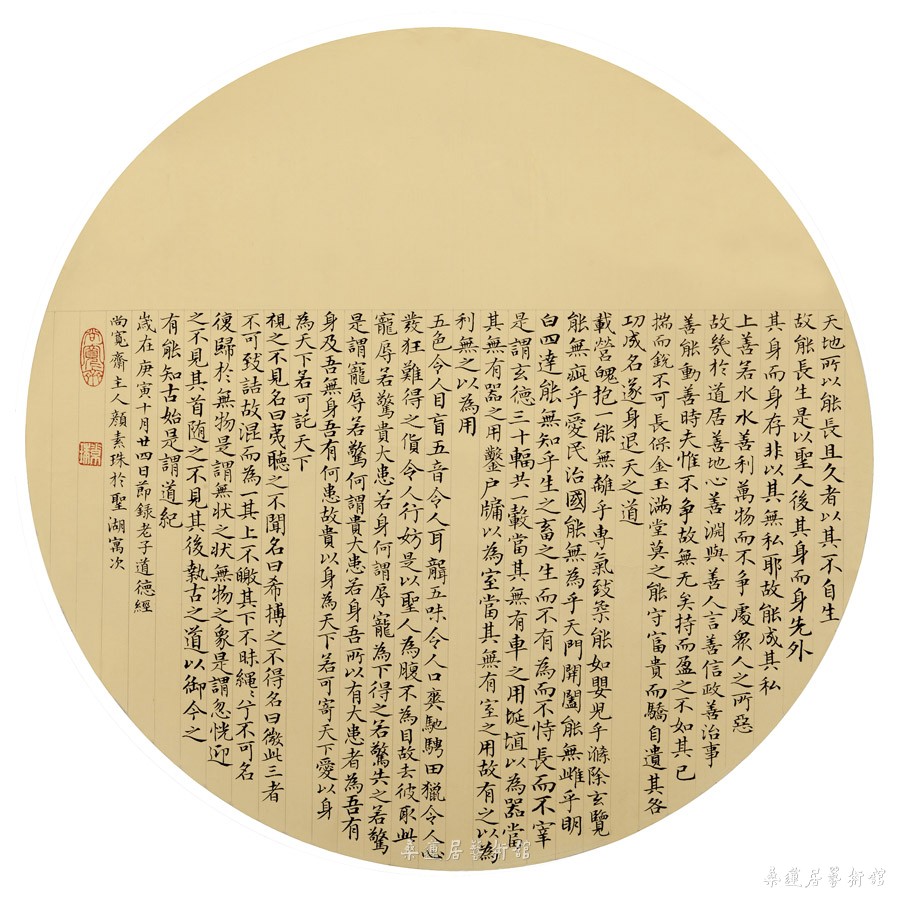 天地所以能長且久者以其不自生
故能長生是以聖人後其身而身先外
其身而身存非以其無私耶故能成其私
上善若水水善利萬物而不爭處眾人之所惡
故幾於道居善地心善淵與善人言善信政善治事
善能動善時夫惟不爭故無尤矣持而盈之不如其已
揣而銳不可長保金玉滿堂莫之能守富貴而驕自遺其咎
功成名遂身退天之道
載營魄抱一能無離乎專氣致柔能如嬰兒乎滌除玄覽
能無疵乎愛民治國能無為乎天門開闔能無雌乎明
白四達能無知乎生之畜之生而不有為而不恃長而不宰
是謂玄德三十輻共一轂當其無有車之用埏埴以為器當
其無有器之用鑿戶牖以為室當其無有室之用故有之以為
利無之以為用
五色令人目盲五音令人耳聾五味令人口爽馳騁田獵令人心
發狂難得之貨令人行妨是以聖人為腹不為目故去彼取此
寵辱若驚貴大患若身何謂辱寵為下得之若驚失之若驚
是謂寵辱若驚何謂貴大患若身吾所以有大患者為吾有
身及吾無身吾有何患故貴以身為天下若可寄天下愛以身
為天下若可託天下
視之不見名曰夷聽之不聞名曰希搏之不得名曰微此三者
不可致詰故混而為一其上不皦其下不昧繩〻兮不可名
復歸於無物是謂無狀之狀無物之象是謂忽恍迎
之不見其首隨之不見其後執古之道以御今之
有能知古始是謂道紀
歲在庚寅十月廿四日節錄老子道德經
尚寬齋主人顏素珠於聖湖寓次
桑蓮居藝術館
桑蓮居藝術館